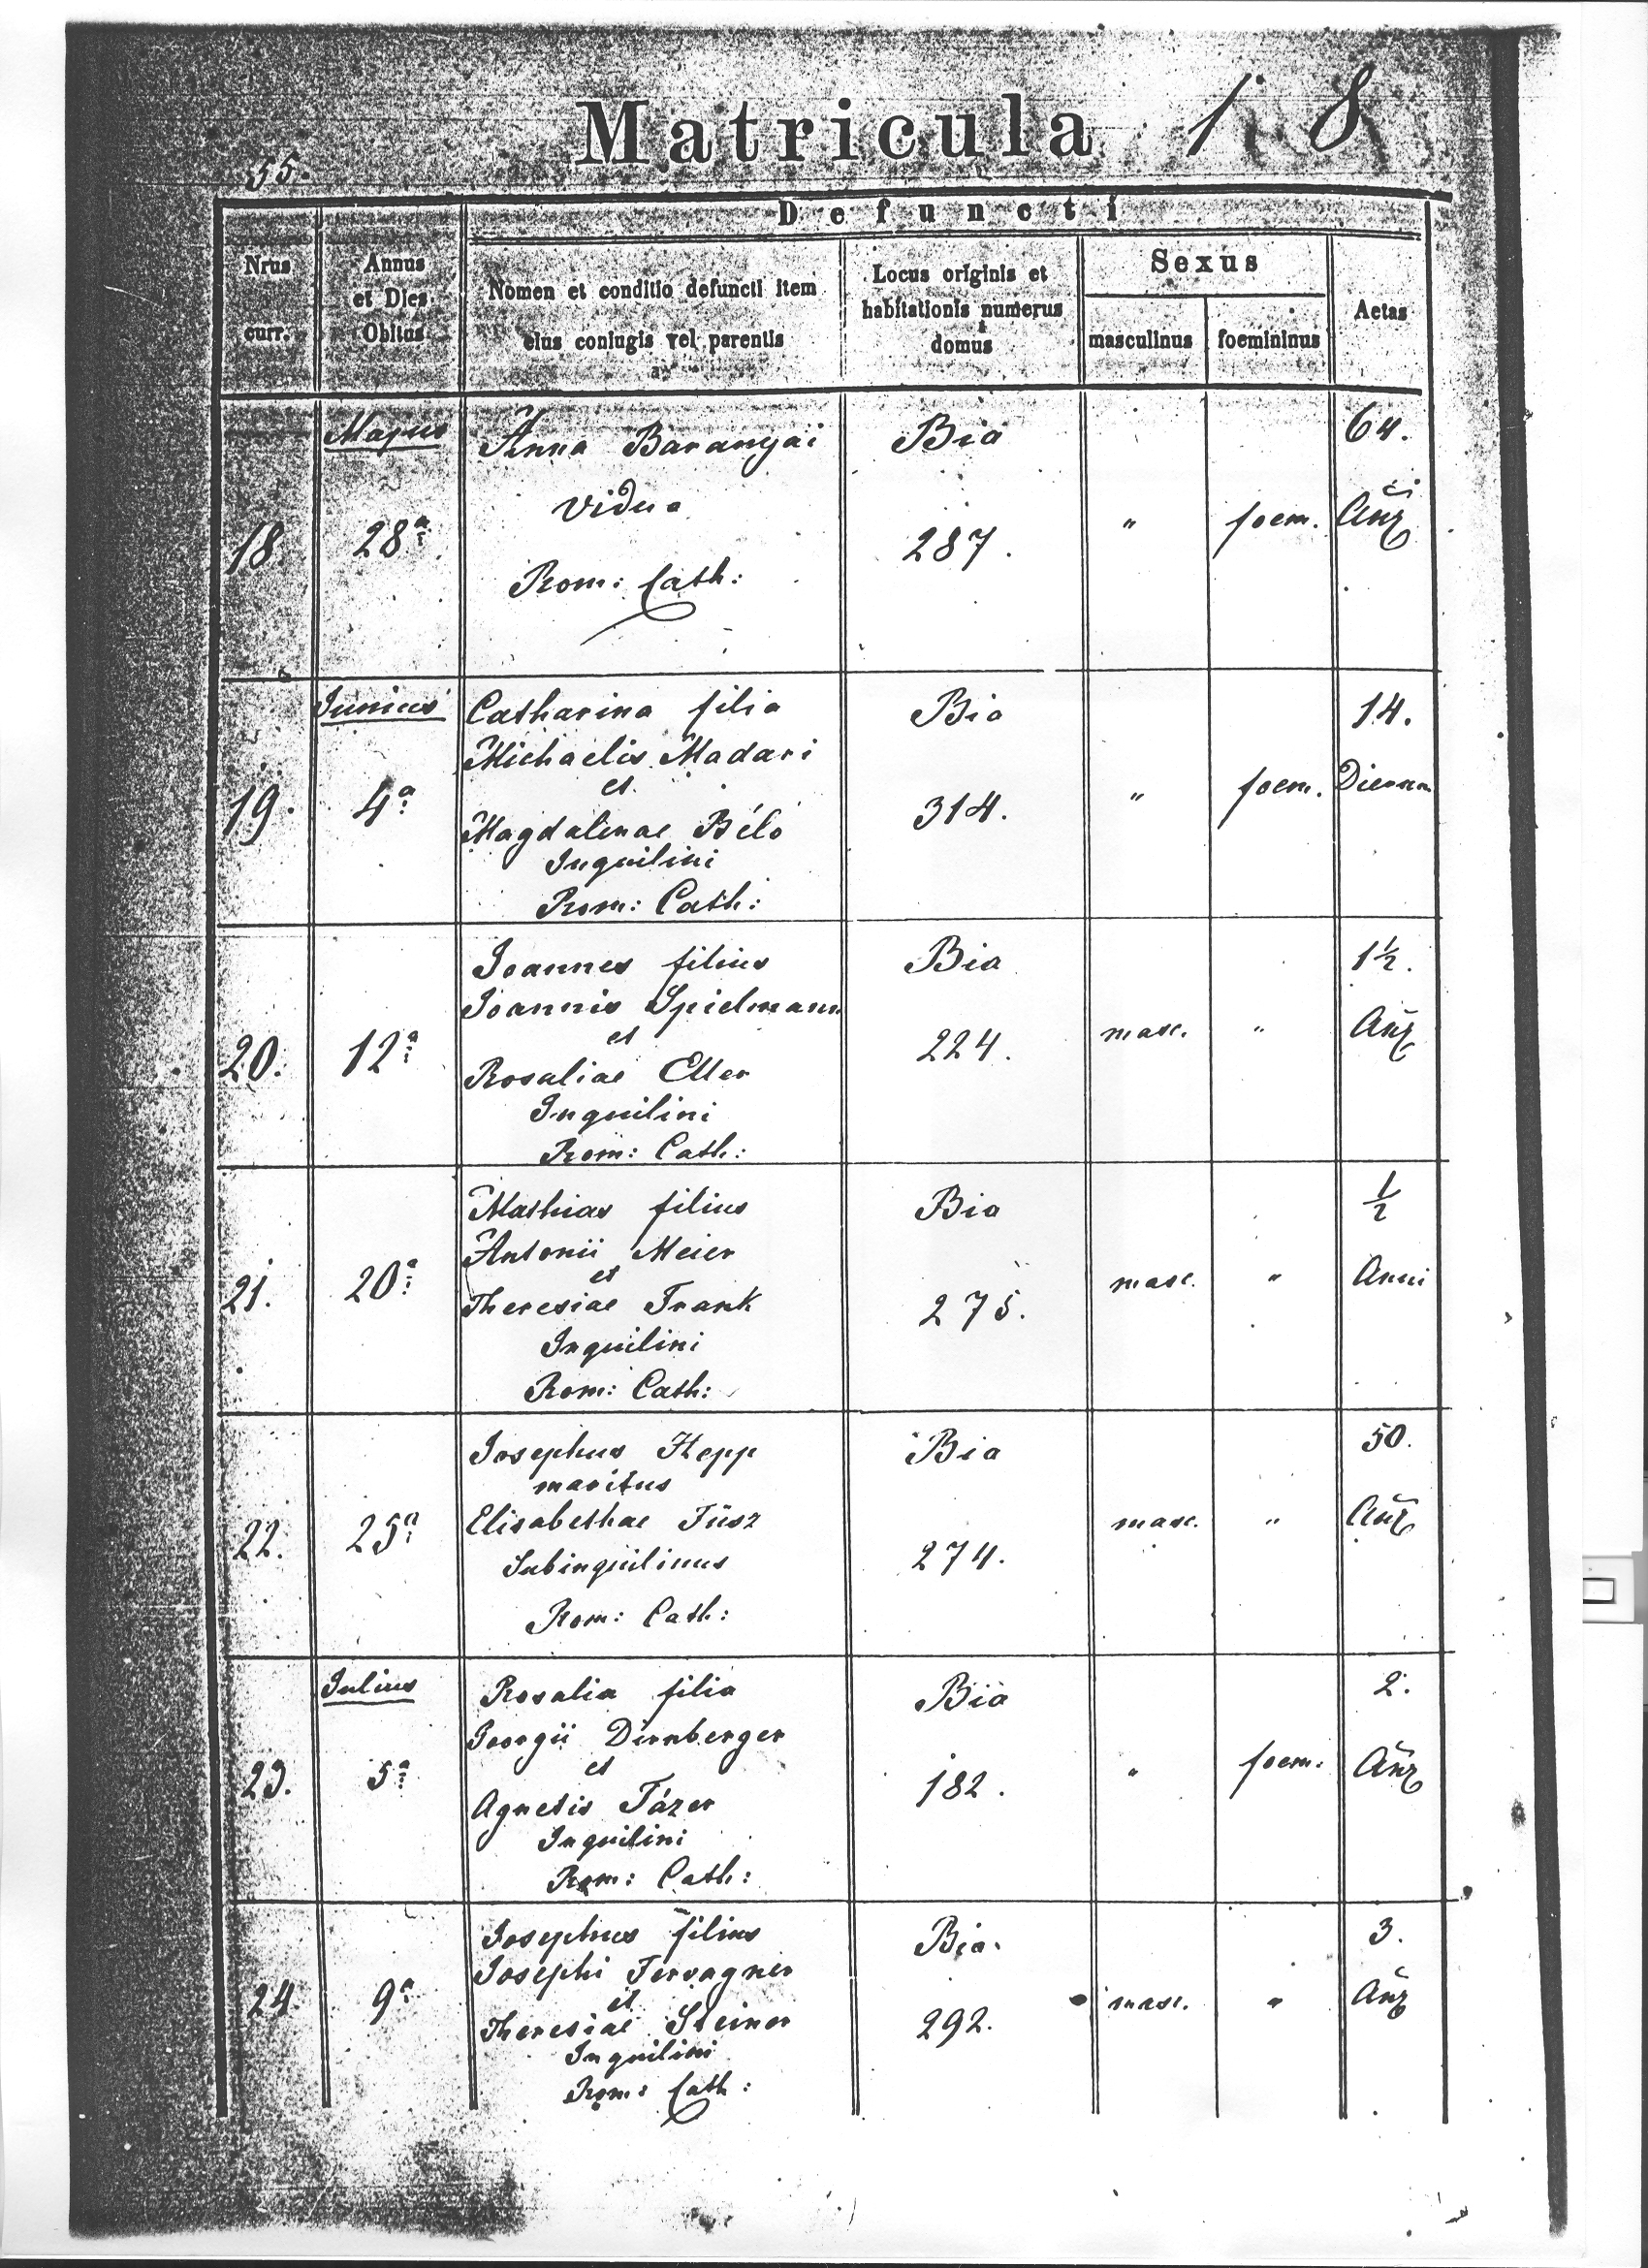 Matricula 18
55.
Defuncti
Nrus curr.
Annus et Dies Obitus
Nomen et conditio defuncti item eius coniugis vel parentis
Locus originis et habitationis numerus domus
Sexus
masculinus
foemininus
Aetas
Majus
18. 28ª
Anna Baranyai
vidua
Rom: Cath:
Bia
287.
" foem.
64.
Añz
Junius
19. 4ª
Catharina filia
Michaelis Madari
et
Magdalenae Béló
Inquilini
Rom: Cath:
Bia
314.
" foem.
14.
Dierum
20. 12ª
Joannes filius
Joannis Spielmann
et
Rosaliae Eller
Inquilini
Rom: Cath:
Bia
224.
masc. "
1½.
Añz
21. 20ª
Mathias filius
Antonii Meier
et
Theresiae Frank
Inquilini
Rom: Cath:
Bia
275.
masc. "
½
Anni
22. 25ª
Josephus Hepp
maritus
Elisabethae Füsz
Subinquilinus
Rom: Cath:
Bia
274.
masc. "
50.
Añz
Julius
23. 5ª
Rosalia filia
Georgii Dirnberger
et
Agnetis Fázer
Inquilini
Rom: Cath:
Bia
182.
" foem:
2.
Añz
24. 9ª
Josephus filius
Josephi Tervagner
et
Theresiae Steiner
Inquilini
Rom: Cath:
Bia.
292.
masc. "
3.
Añz